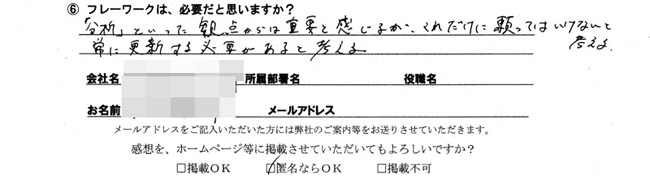 ⑥ フレーワークは、必要だと思いますか?
「分析」といった観点からは重要と感じるが、それだけに頼ってはいけないと
常に更新する必要があると考える 考える。
会社名 所属部署名 役職名
お名前 メールアドレス
メールアドレスをご記入いただいた方には弊社のご案内等をお送りさせていただきます。
感想を、ホームページ等に掲載させていただいてもよろしいですか?
□掲載OK □匿名ならOK □掲載不可